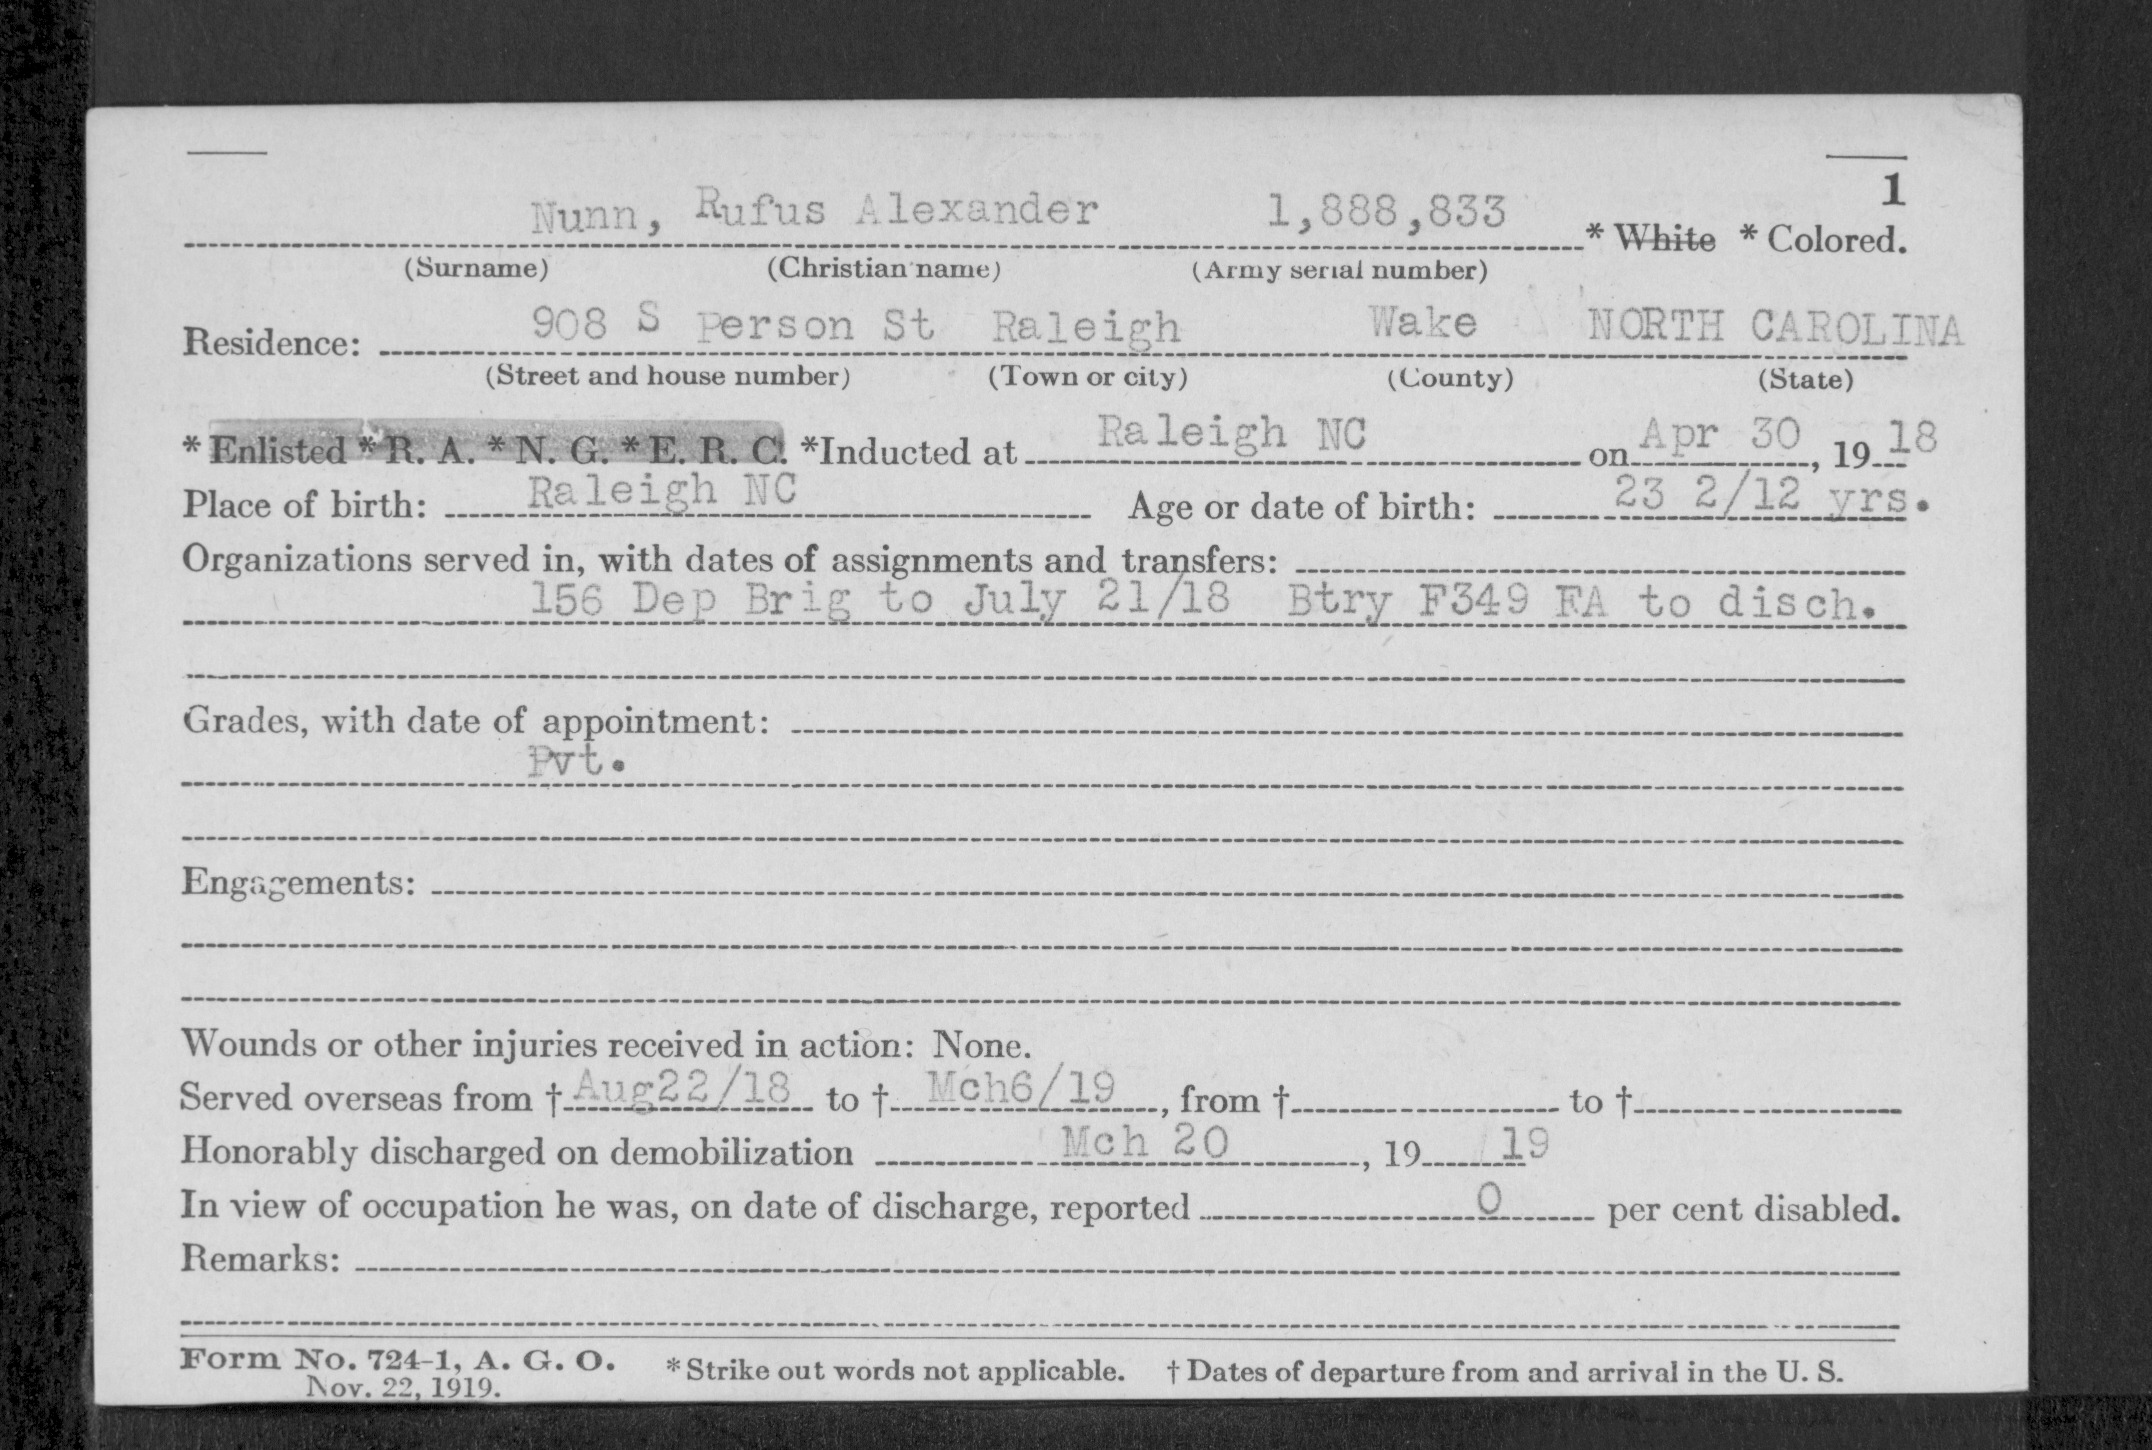 1
Nunn, Rufus Alexander 1,888,833 * White * Colored.
(Surname) (Christian name) (Army serial number)
Residence: 908 S Person St Raleigh Wake NORTH CAROLINA
(Street and house number) (Town or city) (County) (State)
* Enlisted * R. A. * N. G. * E. R. C. *Inducted at Raleigh NC on Apr 30, 1918
Place of birth: Raleigh NC Age or date of birth: 23 2/12 yrs.
Organizations served in, with dates of assignments and transfers:
156 Dep Brig to July 21/18 Btry F349 FA to disch.
Grades, with date of appointment:
Pvt.
Engagements:
Wounds or other injuries received in action: None.
Served overseas from † Aug22/18 to † Mch6/19, from † to †
Honorably discharged on demobilization Mch 20, 19 19
In view of occupation he was, on date of discharge, reported 0 per cent disabled.
Remarks:
Form No. 724-1, A. G. O. * Strike out words not applicable. † Dates of departure from and arrival in the U. S.
Nov. 22, 1919.